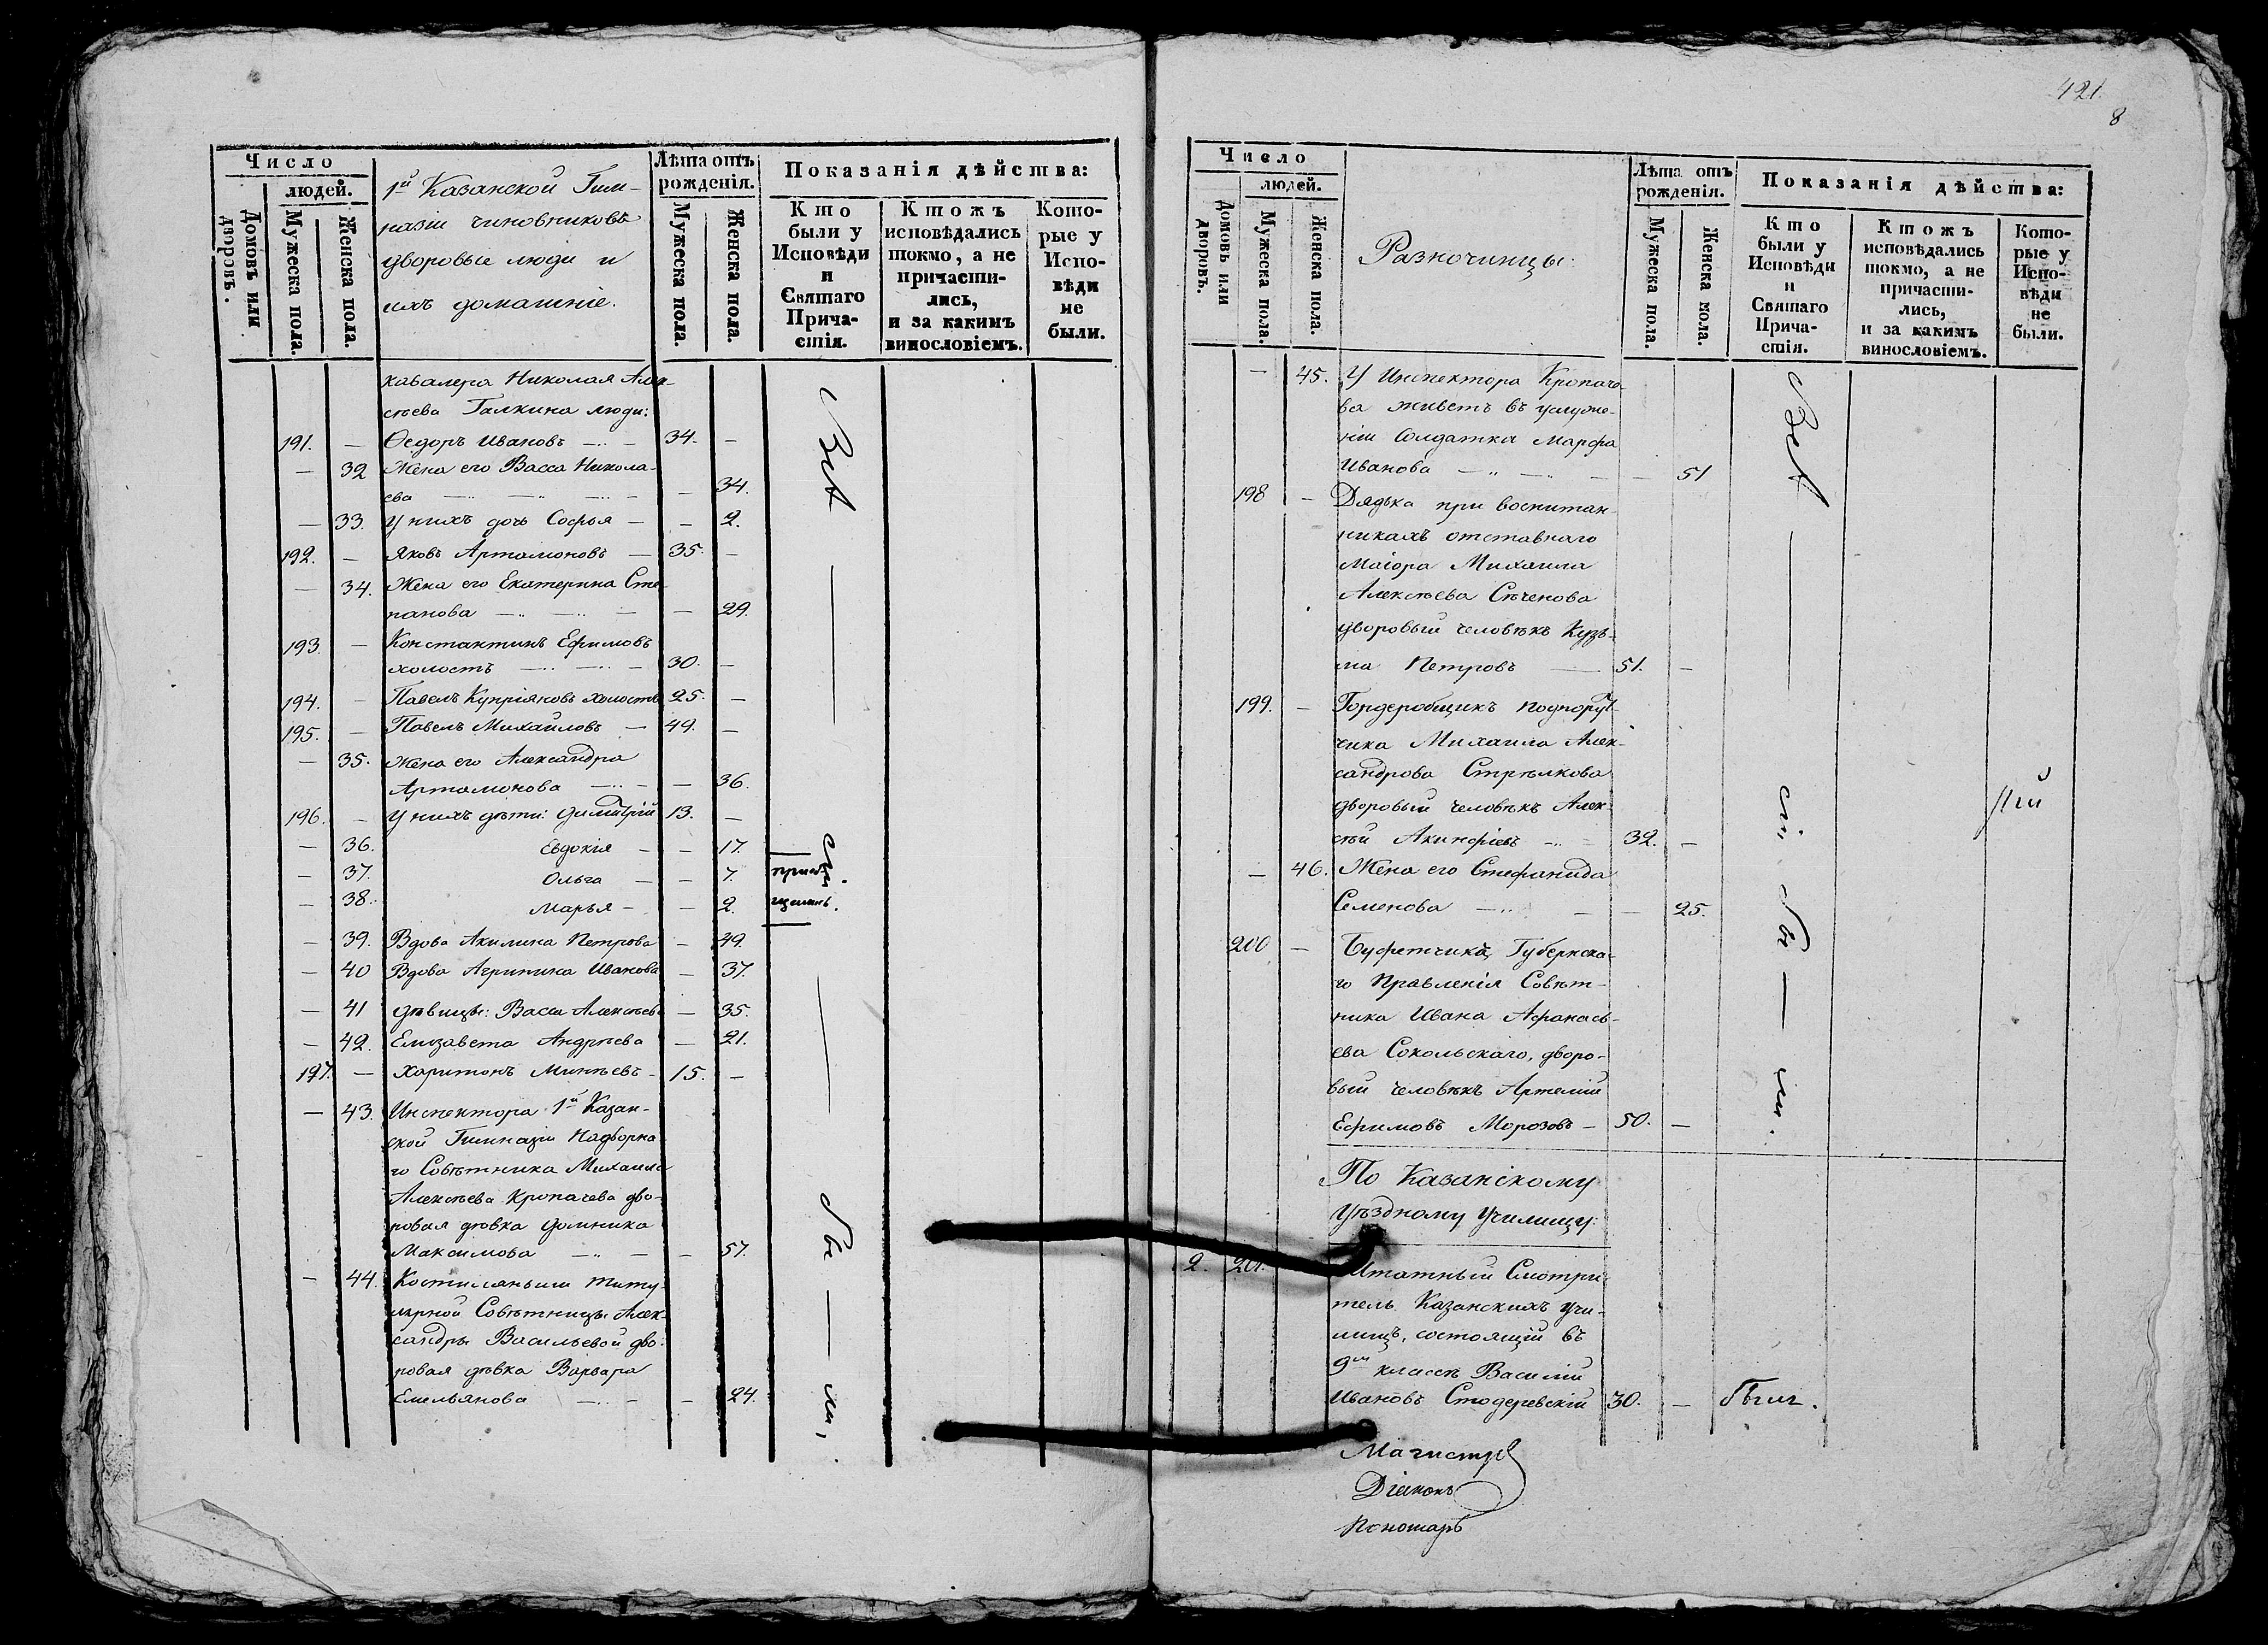 Число
людей.
Домовъ или дворовъ.
Мужеска пола.
Женска пола.
1й Казанской Гим-
назіи чиновниковъ
дворовые люди и
ихъ домашніе.
Лѣта отъ
рожденія.
Мужеска пола.
Женска пола.
Показанія дѣйства:
Кто
были у
Исповѣди
и
Святаго
Прича-
стія.
Ктожъ
исповѣдались
токмо, а не
причасти-
лись,
и за какимъ
винословіемъ.
Кото-
рые у
Испо-
вѣди
не
были.
кавалера Николая Алек-
сѣева Галкина люди:
191. — Ѳедоръ Ивановъ — 34. —
— 32 Жена его Васса Никола-
ева — — — — 34.
— 33. У нихъ дочь Софья — — 2.
192. — Яковъ Артамоновъ — 35. —
— 34. Жена его Екатерина Сте-
панова — — — — 29.
193. — Константинъ Ефимовъ
холостъ — — — 30. —
194. — Павелъ Купріяновъ холостъ 25. —
195. — Павелъ Михайловъ — 49. —
— 35. Жена его Александра
Артамонова — — — 36.
196. — У нихъ дѣти: Димитрій 13. —
— 36. Евдокія — — 17.
— 37. Ольга — — 7.
— 38. Марья — — 2.
— 39. Вдова Акилина Петрова — 49.
— 40 Вдова Агрипина Иванова — 37.
— 41 Дѣвицы: Васса Алексѣева — 35.
— 42. Елизавета Андрѣева — 21.
197. — Харитонъ Минѣевъ — 15. —
— 43. Инспектора 1й Казан-
ской Гимназіи Надворна-
го Совѣтника Михаила
Алексѣева Кропачева дво-
ровая дѣвка Домника
Максимова — — — 57.
— 44. Костелянши титу-
лярной Совѣтницы Алек-
сандры Васильевой дво-
ровая дѣвка Варвара
Емельянова — — — 24.
Всѣ
сіи
бы — ли.
421.
8
Число
людей.
Домовъ или дворовъ.
Мужеска пола.
Женска пола.
Разночинцы:
Лѣта отъ
рожденія.
Мужеска пола.
Женска пола.
Показанія дѣйства:
Кто
были у
Исповѣди
и
Святаго
Прича-
стія.
Ктожъ
исповѣдались
токмо, а не
причасти-
лись,
и за какимъ
винословіемъ.
Кото-
рые у
Испо-
вѣди
не
были.
— 45. У Инспектора Кропаче-
ва живетъ въ услуже-
ніи Солдатка Марфа
Иванова — — — — 51
198 — Дядька при воспитан-
никахъ отставнаго
Маіора Михаила
Алексѣева Сѣченова
дворовый человѣкъ Кузь-
ма Петровъ — 51. —
199. — Гардеробщикъ Подпору-
чика Михаила Алек-
сандрова Стрѣлкова
дворовый человѣкъ Алек-
сѣй Акинфіевъ — 32. —
— 46. Жена его Стефанида
Семенова — — — 25.
200 — Буфетчикъ, Губернска-
го Правленія Совѣт-
ника Ивана Афанась-
ева Сокольскаго, дворо-
вый человѣкъ Артемій
Ефимовъ Морозовъ — 50. —
Всѣ —
сіи
бы — ли.
По Казанскому
Уѣздному Училищу:
2. 201. Штатный Смотри-
тель Казанскихъ Учи-
лищъ, состоящій въ
9мъ классѣ Василій
Ивановъ Стодеревскій 30. — былъ.
Магистръ
Діаконъ
Пономарь